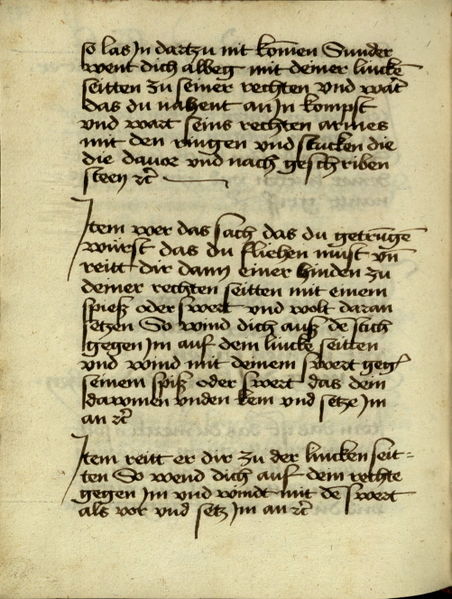 so las In dartzu nit komen Sunder
went dich albeg mit deiner lincke
seitten zu seiner rechten und wart
das du nahent an In kompst
und wart seins rechten armes
mit den ringen und stucken die
die davor und nach geschriben
steen rc
Item wer das sach das du getrunge
würst das du fliehen must un
reitt dir dann einer hinden zu
deiner rechten seitten mit einem
spiesz oder swert und wolt daran
setzen So wind dich ausz de stich
gegen Im auf dem lincke seitten
und wind mit deinem swert geg
seinem spisz oder swert das dein
dawmen unden kem und setze Im
an rc
Item reitt er dir zu der lincken seit=
ten So wend dich auf dem rechte
gegen Im und windt mit de swert
als vor und setz Im an rc